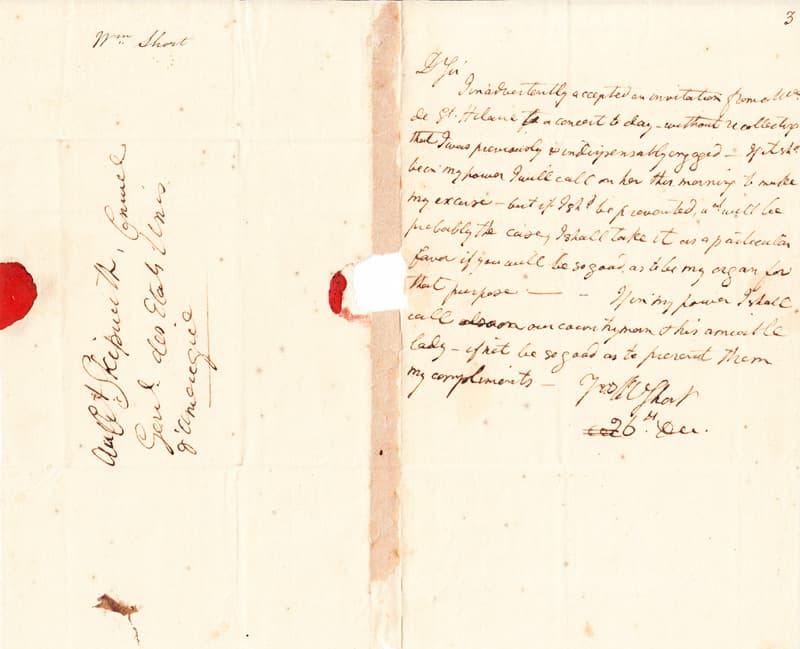 Wm Short
Au Ct. Skipwith, Consul
Genl. des Etats Unis
d'amerique
3
D Sir
I inadvertently accepted an invitation from Me
de St. Hilaire to a concert to day - without recollecting
that I was previously & indispensably engaged - If it shd
be in my power I will call on her this morning to make
my excuse - but if I shd be prevented, as will be
probably the case, I shall take it as a particular
favor if you will be so good as to be my organ for
that purpose — - If in my power I shall
call our countryman & his amiable
lady - if not be so good as to present them
my compliments -
Yrs W Short
26th Dec.